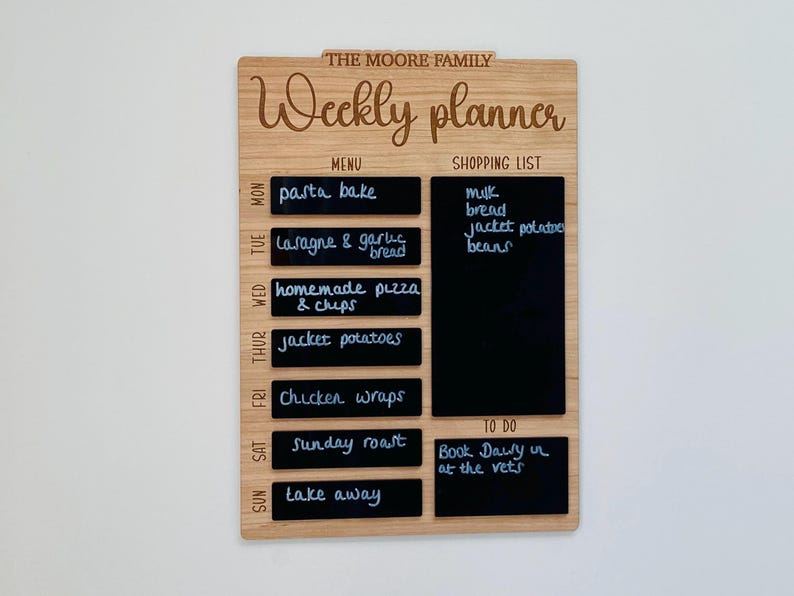 THE MOORE FAMILY
Weekly planner
MENU
MON
pasta bake
TUE
Lasagne & garlic
bread
WED
homemade pizza
& chips
THUR
jacket potatoes
FRI
Chicken wraps
SAT
sunday roast
SUN
take away
SHOPPING LIST
milk
bread
jacket potatoes
beans
TO DO
Book Daisy in
at the vets